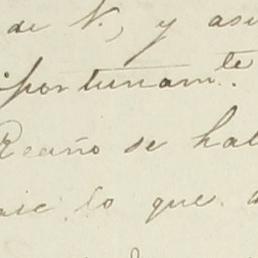 de V., y asi
oportunam.te
Reaño se hal
lo que